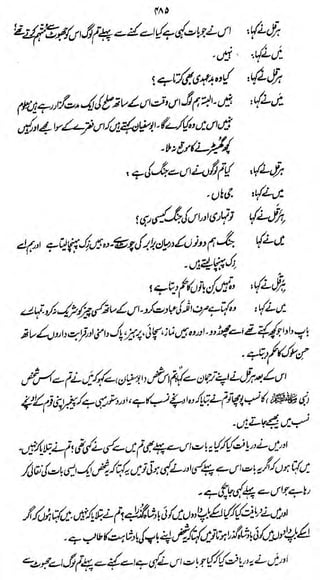 ۴۸۵
ہرقل نے کہا: اس نے جو بات کہی ہے کیا اسے کہنے سے پہلے تم لوگ اس کو جھوٹ سے متہم کرتے تھے؟
میں نے کہا: نہیں۔
ہرقل نے کہا: کیا وہ بدعہدی بھی کرتا ہے؟
میں نے کہا: نہیں۔ البتہ ہم لوگ اس وقت اس کے ساتھ صلح کی ایک مدت گزار رہے ہیں معلوم
نہیں اس میں وہ کیا کرے گا۔ ابوسفیان کہتے ہیں کہ اس فقرے کے سوا مجھے اور کہیں
کچھ گھسیڑنے کا موقع نہ ملا۔
ہرقل نے کہا: کیا تم لوگوں نے اس سے جنگ کی ہے؟
میں نے کہا: جی ہاں۔
ہرقل نے کہا تو تمہاری اور اس کی جنگ کیسی رہی؟
میں نے کہا جنگ ہم دونوں کے درمیان برابر کی چوٹ ہے۔ وہ ہمیں زک پہنچا لیتا ہے اور ہم اسے
زک پہنچا لیتے ہیں۔
ہرقل نے کہا: وہ تمہیں کن باتوں کا حکم دیتا ہے؟
میں نے کہا: وہ کہتا ہے صرف اللہ کی عبادت کرو۔ اس کے ساتھ کسی چیز کو شریک نہ کرو۔ تمہارے
باپ دادا جو کچھ کہتے تھے اسے چھوڑ دو۔ اور وہ ہمیں نماز، سچائی، پرہیز، پاک دامنی اور قرابت داروں کے ساتھ
حسن سلوک کا حکم دیتا ہے۔
اس کے بعد ہرقل نے اپنے ترجمان سے کہا تم اس شخص (ابوسفیان) سے کہو کہ میں نے تم سے اس شخص
(نبی ﷺ) کا نسب پوچھا تو تم نے بتایا کہ وہ اونچے نسب کا ہے، اور دستور یہی ہے کہ پیغمبر اپنی قوم کے اونچے
نسب میں بھیجے جاتے ہیں۔
اور میں نے دریافت کیا کہ کیا یہ بات اس سے پہلے بھی تم میں سے کسی نے کہی تھی؟ تم نے بتلایا کہ نہیں۔
میں کہتا ہوں کہ اگر یہ بات اس سے پہلے کسی اور نے کہی ہوتی تو میں یہ کہتا کہ یہ شخص ایک ایسی بات کی نقالی کر
رہا ہے جو اس سے پہلے کہی جا چکی ہے۔
اور میں نے دریافت کیا کہ کیا اسکے باپ دادوں میں کوئی بادشاہ گزرا ہے؟ تم نے بتلایا کہ نہیں۔ میں کہتا ہوں کہ اگر
اسکے باپ دادوں میں کوئی بادشاہ گزرا ہوتا تو میں کہتا کہ یہ شخص اپنے باپ کی بادشاہت کا طالب ہے۔
اور میں نے یہ دریافت کیا کہ کیا جو بات اس نے کہی ہے اسے کہنے سے پہلے تم لوگ اسے جھوٹ سے